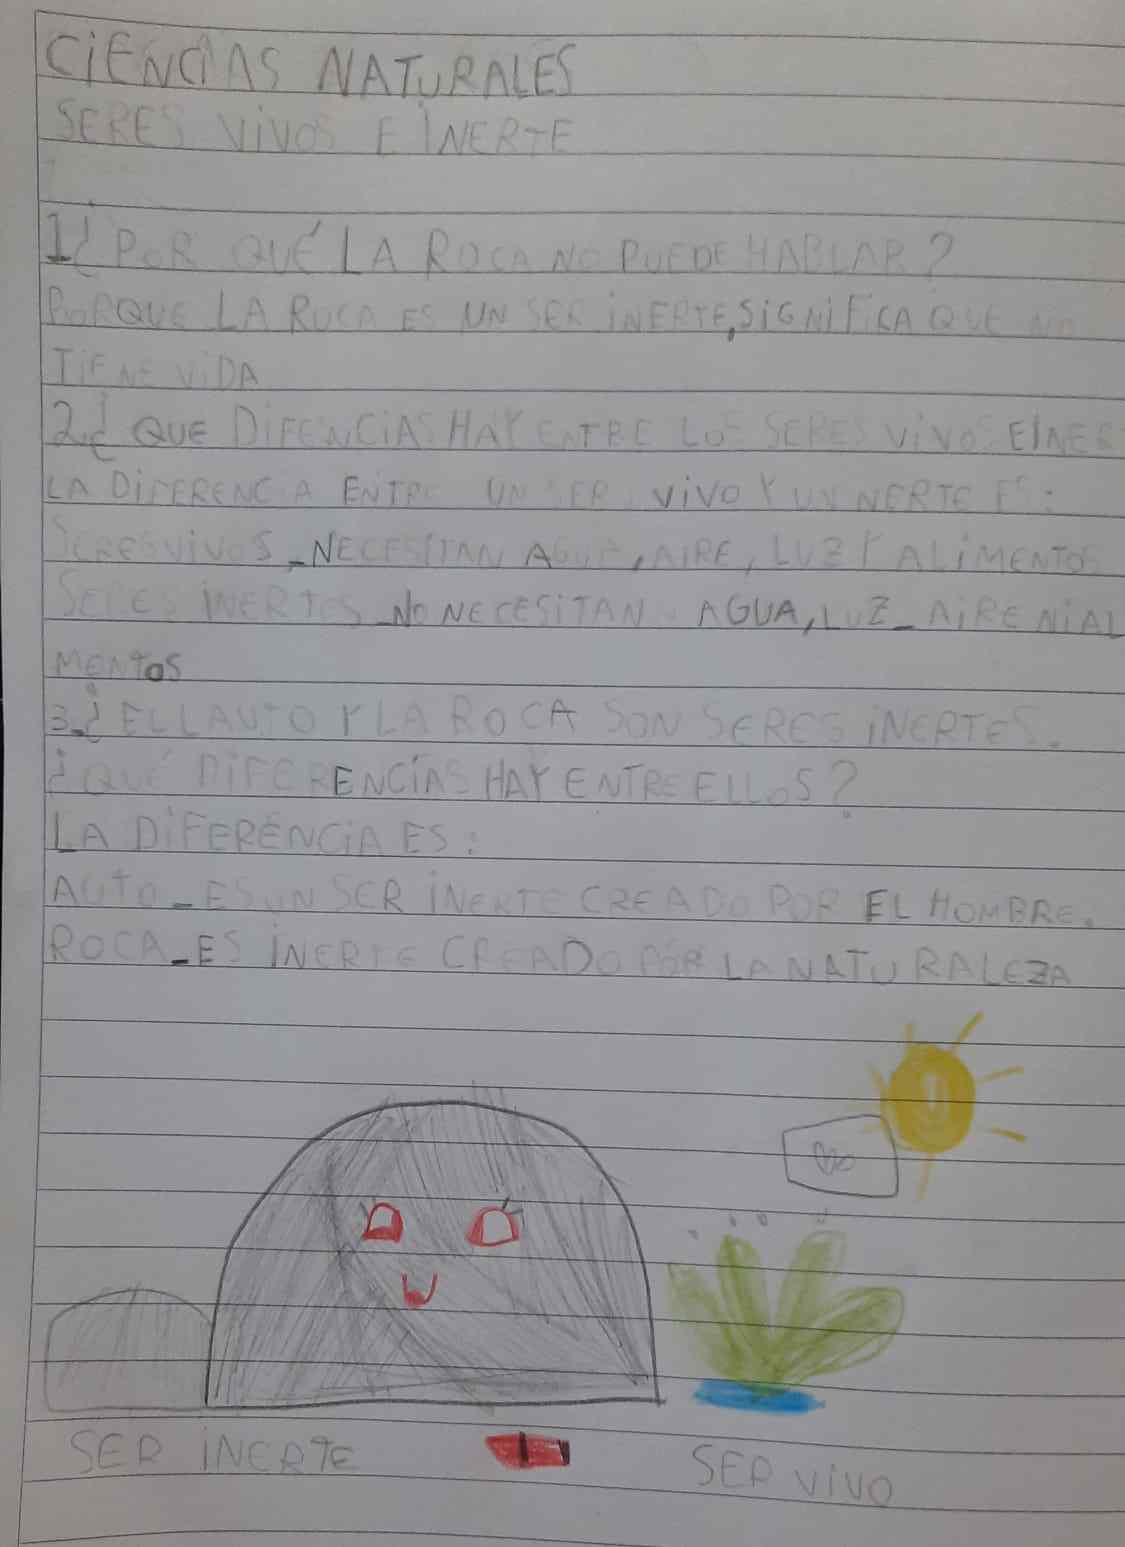 CIENCIAS NATURALES
SERES VIVOS E INERTE
1¿POR QUÉ LA ROCA NO PUEDE HABLAR?
PORQUE LA ROCA ES UN SER INERTE, SIGNIFICA QUE NO
TIENE VIDA
2.¿QUE DIFENCIAS HAY ENTRE LOS SERES VIVOS E INER
LA DIFERENCIA ENTRE UN SER VIVO Y UN NERTE ES:
SERES VIVOS_NECESITAN AGUA, AIRE, LUZ Y ALIMENTOS
SERES INERTES_NO NECESITAN AGUA, LUZ_AIRE NI AL
MENTOS
3.¿EL LAUTO Y LA ROCA SON SERES INERTES.
¿QUÉ DIFERENCÍAS HAY ENTRE ELLOS?
LA DIFERÉNCIA ES:
AUTO_ES UN SER INERTE CREADO POR EL HOMBRE.
ROCA_ES INERTE CREADO POR LA NATURALEZA
SER INERTE
SER VIVO